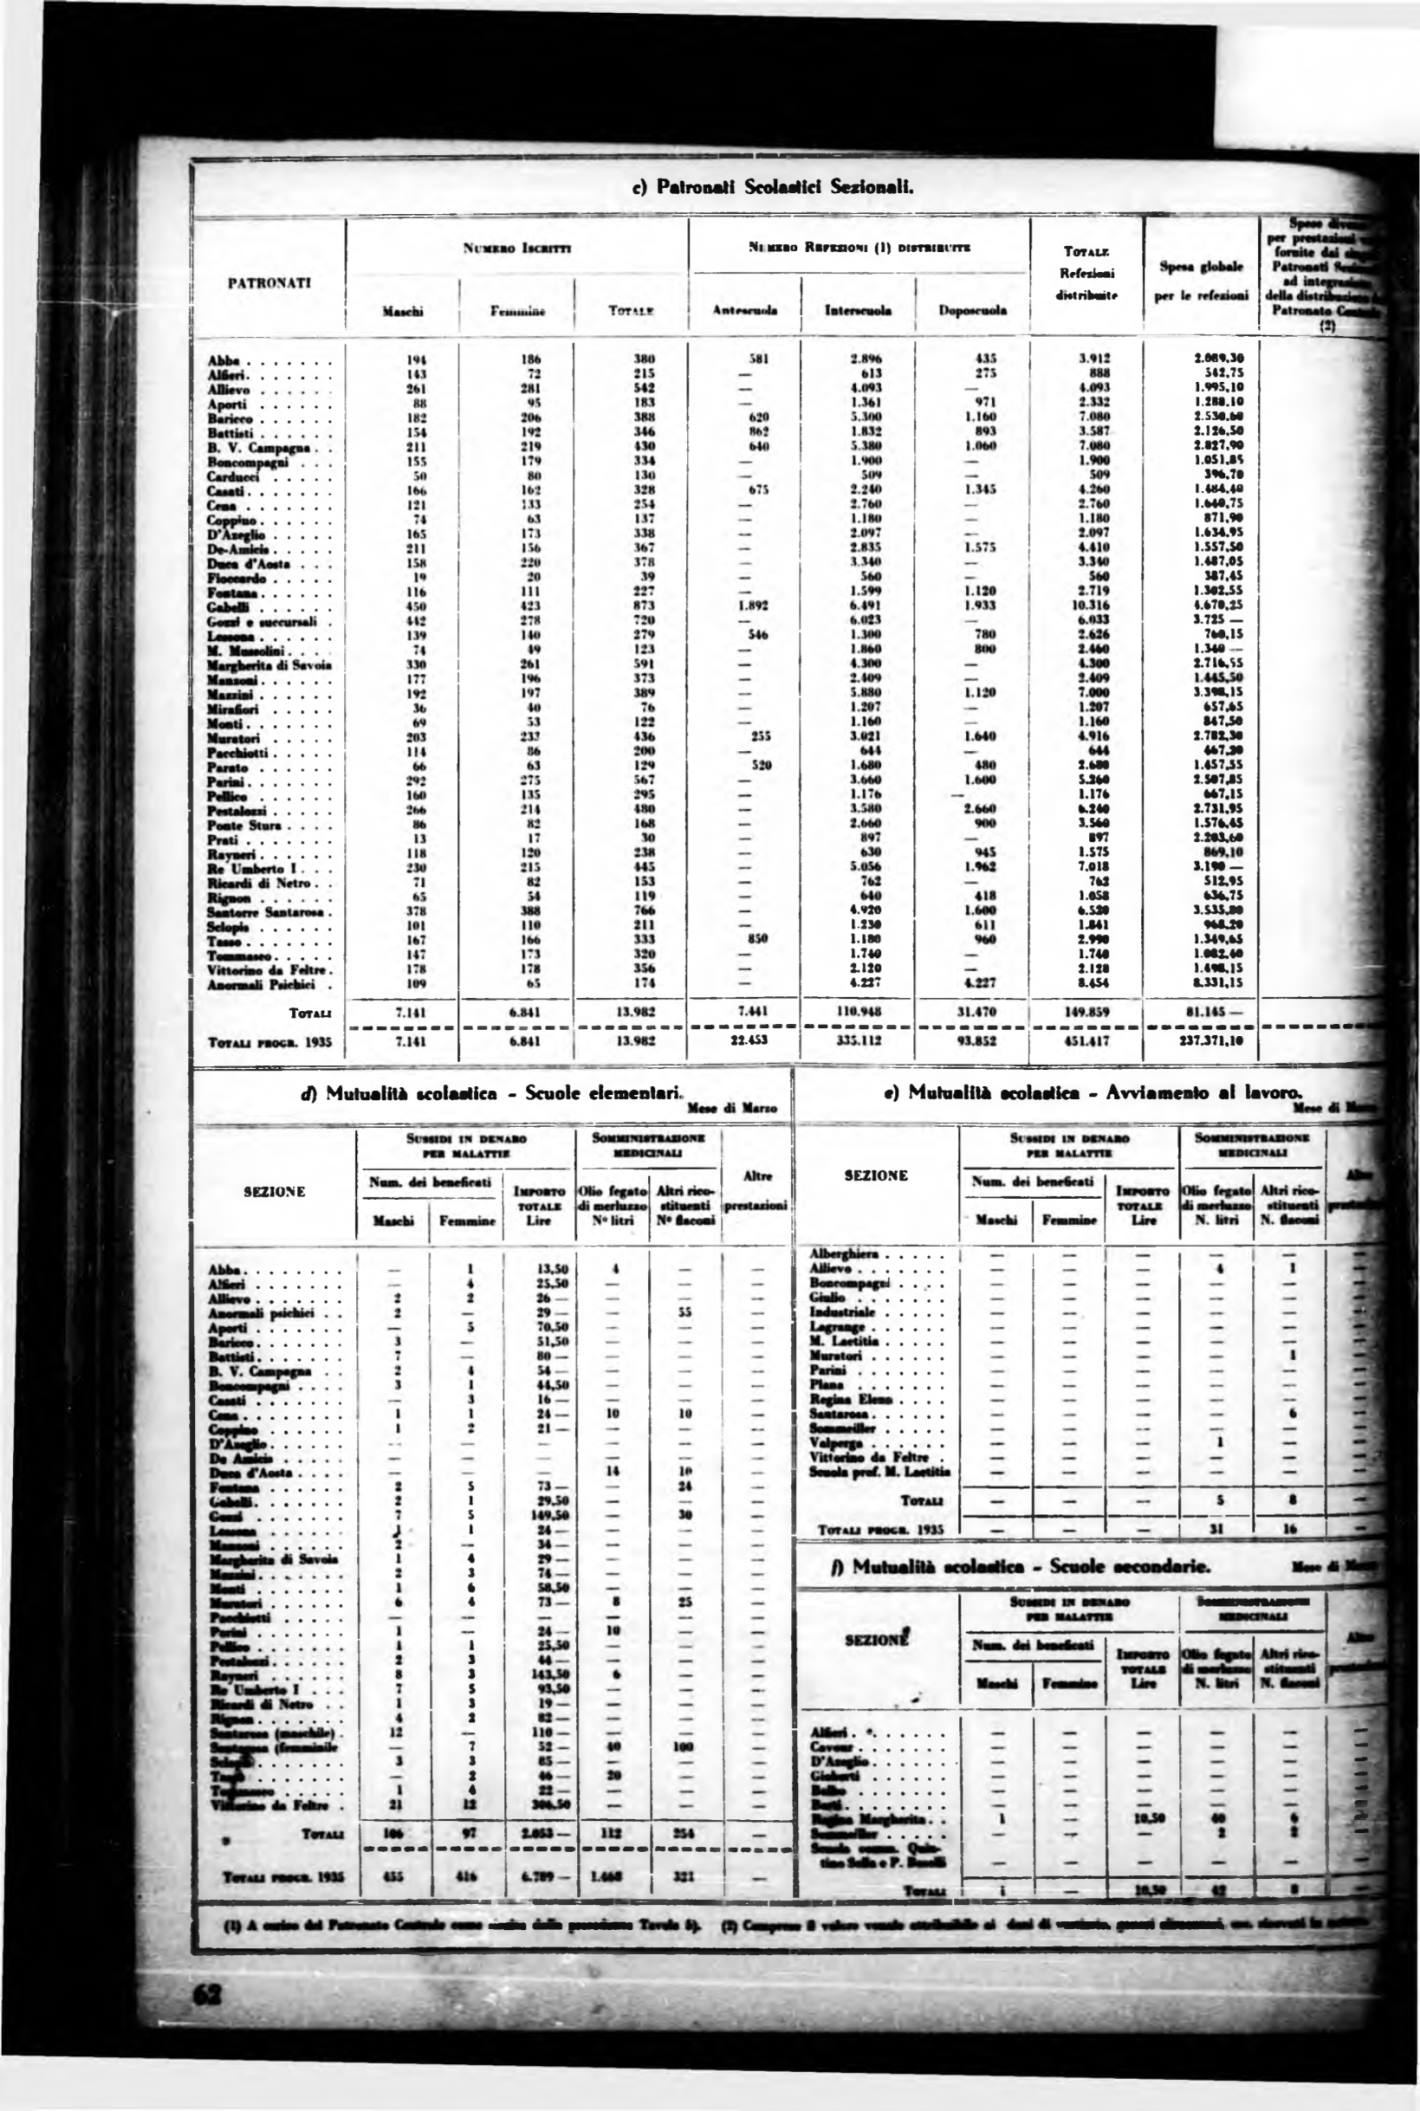 c) Patronati Scolastici Sezionali.
PATRONATI
NUMERO ISCRITTI
NUMERO REFEZIONI (1) DISTRIBUITE
TOTALE
Refezioni
distribuite
Spesa globale
per le refezioni
Spese
per prestazioni
fornite dai
Patronati
ad
della
Patronato
(2)
Maschi Femmine TOTALE Antescuola Interscuola Doposcuola
Abba . . . . . . . 194 186 380 581 2.896 435 3.912 2.089,30
Alfieri. . . . . . . 143 72 215 — 613 275 888 542,75
Allievo . . . . . . 261 281 542 — 4.093 — 4.093 1.995,10
Aporti . . . . . . 88 95 183 — 1.361 971 2.332 1.288,10
Baricco . . . . . . 182 206 388 620 5.300 1.160 7.080 2.530,60
Battisti . . . . . . 154 192 346 862 1.832 893 3.587 2.126,50
B. V. Campagna . . 211 219 430 640 5.380 1.060 7.080 2.827,90
Boncompagni . . . 155 179 334 — 1.900 — 1.900 1.051,85
Carducci . . . . . 50 80 130 — 509 — 509 396,70
Casati. . . . . . . 166 162 328 675 2.240 1.345 4.260 1.484,40
Cena . . . . . . . 121 133 254 — 2.760 — 2.760 1.640,75
Coppino. . . . . . 74 63 137 — 1.180 — 1.180 871,90
D'Azeglio . . . . . 165 173 338 — 2.097 — 2.097 1.634,95
De-Amicis . . . . . 211 156 367 — 2.835 1.575 4.410 1.557,50
Duca d'Aosta . . . 158 220 378 — 3.340 — 3.340 1.487,05
Fioccardo . . . . . 19 20 39 — 560 — 560 387,45
Fontana . . . . . . 116 111 227 — 1.599 1.120 2.719 1.302,55
Gabelli . . . . . . 450 423 873 1.892 6.491 1.933 10.316 4.670,25
Gozzi e succursali . 442 278 720 — 6.023 — 6.033 3.725 —
Lessona . . . . . . 139 140 279 546 1.300 780 2.626 760,15
M. Mussolini. . . . 74 49 123 — 1.860 800 2.460 1.340 —
Margherita di Savoia 330 261 591 — 4.300 — 4.300 2.716,55
Manzoni . . . . . . 177 196 373 — 2.409 — 2.409 1.445,50
Mazzini . . . . . . 192 197 389 — 5.880 1.120 7.000 3.398,15
Mirafiori . . . . . 36 40 76 — 1.207 — 1.207 657,65
Monti. . . . . . . 69 53 122 — 1.160 — 1.160 847,50
Muratori . . . . . 203 233 436 255 3.021 1.640 4.916 2.782,30
Pacchiotti . . . . . 114 86 200 — 644 — 644 467,20
Parato . . . . . . 66 63 129 520 1.680 480 2.680 1.457,55
Parini. . . . . . . 292 275 567 — 3.660 1.600 5.260 2.507,85
Pellico . . . . . . 160 135 295 — 1.176 — 1.176 667,15
Pestalozzi . . . . . 266 214 480 — 3.580 2.660 6.240 2.731,95
Ponte Stura . . . . 86 82 168 — 2.660 900 3.560 1.576,45
Prati . . . . . . . 13 17 30 — 897 — 897 2.203,60
Rayneri. . . . . . 118 120 238 — 630 945 1.575 869,10
Re Umberto I . . . 230 215 445 — 5.056 1.962 7.018 3.190 —
Ricardi di Netro . . 71 82 153 — 762 — 762 512,95
Rignon . . . . . . 65 54 119 — 640 418 1.058 636,75
Santorre Santarosa . 378 388 766 — 4.920 1.600 6.520 3.535,80
Sclopis . . . . . . 101 110 211 — 1.230 611 1.841 968,20
Tasso . . . . . . . 167 166 333 850 1.180 960 2.990 1.349,65
Tommaseo . . . . . 147 173 320 — 1.740 — 1.740 1.082,40
Vittorino da Feltre . 178 178 356 — 2.120 — 2.120 1.498,15
Anormali Psichici . 109 65 174 — 4.227 4.227 8.454 8.331,15
TOTALI 7.141 6.841 13.982 7.441 110.948 31.470 149.859 81.145 —
TOTALI PROGR. 1935 7.141 6.841 13.982 22.453 335.112 93.852 451.417 237.371,10
d) Mutualità scolastica - Scuole elementari.
Mese di Marzo
SEZIONE
SUSSIDI IN DENARO
PER MALATTIE
SOMMINISTRAZIONE
MEDICINALI
Altre
prestazioni
Num. dei beneficati
IMPORTO
TOTALE
Lire
Olio fegato
di merluzzo
N° litri
Altri rico-
stituenti
N° flaconi
Maschi Femmine
Abba . . . . . . . . — 1 13,50 4 — —
Alfieri . . . . . . . — 4 25,50 — — —
Allievo . . . . . . . 2 2 26 — — — —
Anormali psichici . . 2 — 29 — — 55 —
Aporti . . . . . . . — 5 70,50 — — —
Baricco . . . . . . . 3 — 51,50 — — —
Battisti. . . . . . . 7 — 80 — — — —
B. V. Campagna . . 2 4 54 — — — —
Boncompagni . . . . 3 1 44,50 — — —
Casati . . . . . . . — 3 16 — — — —
Cena . . . . . . . . 1 1 24 — 10 10 —
Coppino . . . . . . 1 2 21 — — — —
D'Azeglio . . . . . . — — — — — —
De Amicis . . . . . — — — — — —
Duca d'Aosta . . . . — — — 14 10 —
Fontana . . . . . . 2 5 73 — — 24 —
Gabelli. . . . . . . 2 1 29,50 — — —
Gozzi . . . . . . . 7 5 149,50 — 30 —
Lessona . . . . . . 1 1 24 — — — —
Manzoni . . . . . . 2 — 34 — — — —
Margherita di Savoia 1 4 29 — — — —
Mazzini . . . . . . 2 3 74 — — — —
Monti . . . . . . . 1 6 58,50 — — —
Muratori . . . . . . 6 4 73 — 8 25 —
Pacchiotti . . . . . — — — — — —
Parini . . . . . . . 1 — 24 — 10 — —
Pellico . . . . . . . 1 1 25,50 — — —
Pestalozzi . . . . . . 2 3 44 — — — —
Rayneri . . . . . . 8 3 143,50 6 — —
Re Umberto I . . . 7 5 93,50 — — —
Ricardi di Netro . . 1 3 19 — — — —
Rignon . . . . . . . 4 2 82 — — — —
Santarosa (maschile) . 12 — 110 — — — —
Santarosa (femminile — 7 52 — 40 100 —
3 3 85 — — — —
— 2 46 — 20 — —
1 4 22 — — — —
Vittorino da Feltre . 21 12 306,50 — — —
TOTALI 106 97 2.053 — 112 254 —
TOTALI PROGR. 1935 455 416 6.789 — 1.468 321 —
e) Mutualità scolastica - Avviamento al lavoro.
Mese di
SEZIONE
SUSSIDI IN DENARO
PER MALATTIE
SOMMINISTRAZIONE
MEDICINALI
Altre
Num. dei beneficati
IMPORTO
TOTALE
Lire
Olio fegato
di merluzzo
N. litri
Altri rico-
stituenti
N. flaconi
Maschi Femmine
Alberghiera . . . . . — — — — — —
Allievo . . . . . . . — — — 4 1 —
Boncompagni . . . . — — — — — —
Giulio . . . . . . . — — — — — —
Industriale . . . . . — — — — — —
Lagrange . . . . . . — — — — — —
M. Laetitia . . . . . — — — — — —
Muratori . . . . . . — — — — 1 —
Parini . . . . . . . — — — — — —
Plana . . . . . . . — — — — — —
Regina Elena . . . . — — — — — —
Santarosa . . . . . . — — — — 6 —
Sommeiller . . . . . — — — — — —
Valperga . . . . . . — — — 1 — —
Vittorino da Feltre . — — — — — —
Scuola prof. M. Laetitia — — — — — —
TOTALI — — — 5 8 —
TOTALI PROGR. 1935 — — — 31 16 —
f) Mutualità scolastica - Scuole secondarie.
Mese di
SEZIONE
SUSSIDI IN DENARO
PER MALATTIE
SOMMINISTRAZIONE
MEDICINALI
Num. dei beneficati
IMPORTO
TOTALE
Lire
Olio fegato
di merluzzo
N. litri
Altri rico-
stituenti
N. flaconi
Maschi Femmine
Alfieri . . . . . . . — — — — — —
Cavour . . . . . . . — — — — — —
D'Azeglio . . . . . . — — — — — —
Gioberti . . . . . . — — — — — —
Balbo . . . . . . . — — — — — —
— — — — — —
Regina Margherita . . 1 — 10,50 40 6 —
Sommeiller . . . . . — — — 2 2 —
Scuola comm. Quin-
tino Sella e P. Boselli — — — — — —
TOTALI 1 — 10,50 42 8 —
(1) A carico del Patronato Centrale come risulta dalla precedente Tavola b). (2) Compreso il valore venale attribuibile ai doni di
62